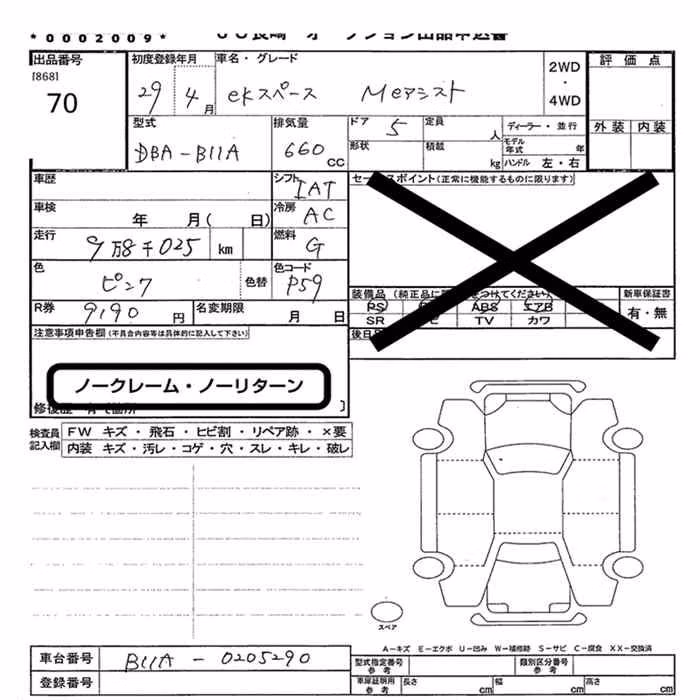 *0002009*
出品番号
[868]
70
初度登録年月
29年4月
車名・グレード
eKスペース Meアシスト
2WD
・
4WD
評価点
外装 内装
型式
DBA-B11A
排気量
660 CC
ドア 5
定員 人
ディーラー・並行
形状
積載 kg
モデル年式 年
ハンドル 左・右
車歴
シフト IAT
セールスポイント(正常に機能するものに限ります)
車検 年 月( 日)
冷房 AC
走行 9万8千025 km
燃料 G
色 ピンク 色替
色コード P59
装備品
新車保証書
有・無
PS ABS エアB
SR TV カワ
R券 9190円
名変期限 月 日
後日
注意事項申告欄(不具合内容等は具体的に記入して下さい)
ノークレーム・ノーリターン
検査員記入欄
FW キズ・飛石・ヒビ割・リペア跡・×要
内装 キズ・汚レ・コゲ・穴・スレ・キレ・破レ
スペア
A-キズ E-エクボ U-凹み W-補修跡 S-サビ C-腐食 XX-交換済
車台番号 B11A-0205290
登録番号
型式指定番号 参考
類別区分番号 参考
車庫証明用 参考
長さ cm 幅 cm 高さ cm